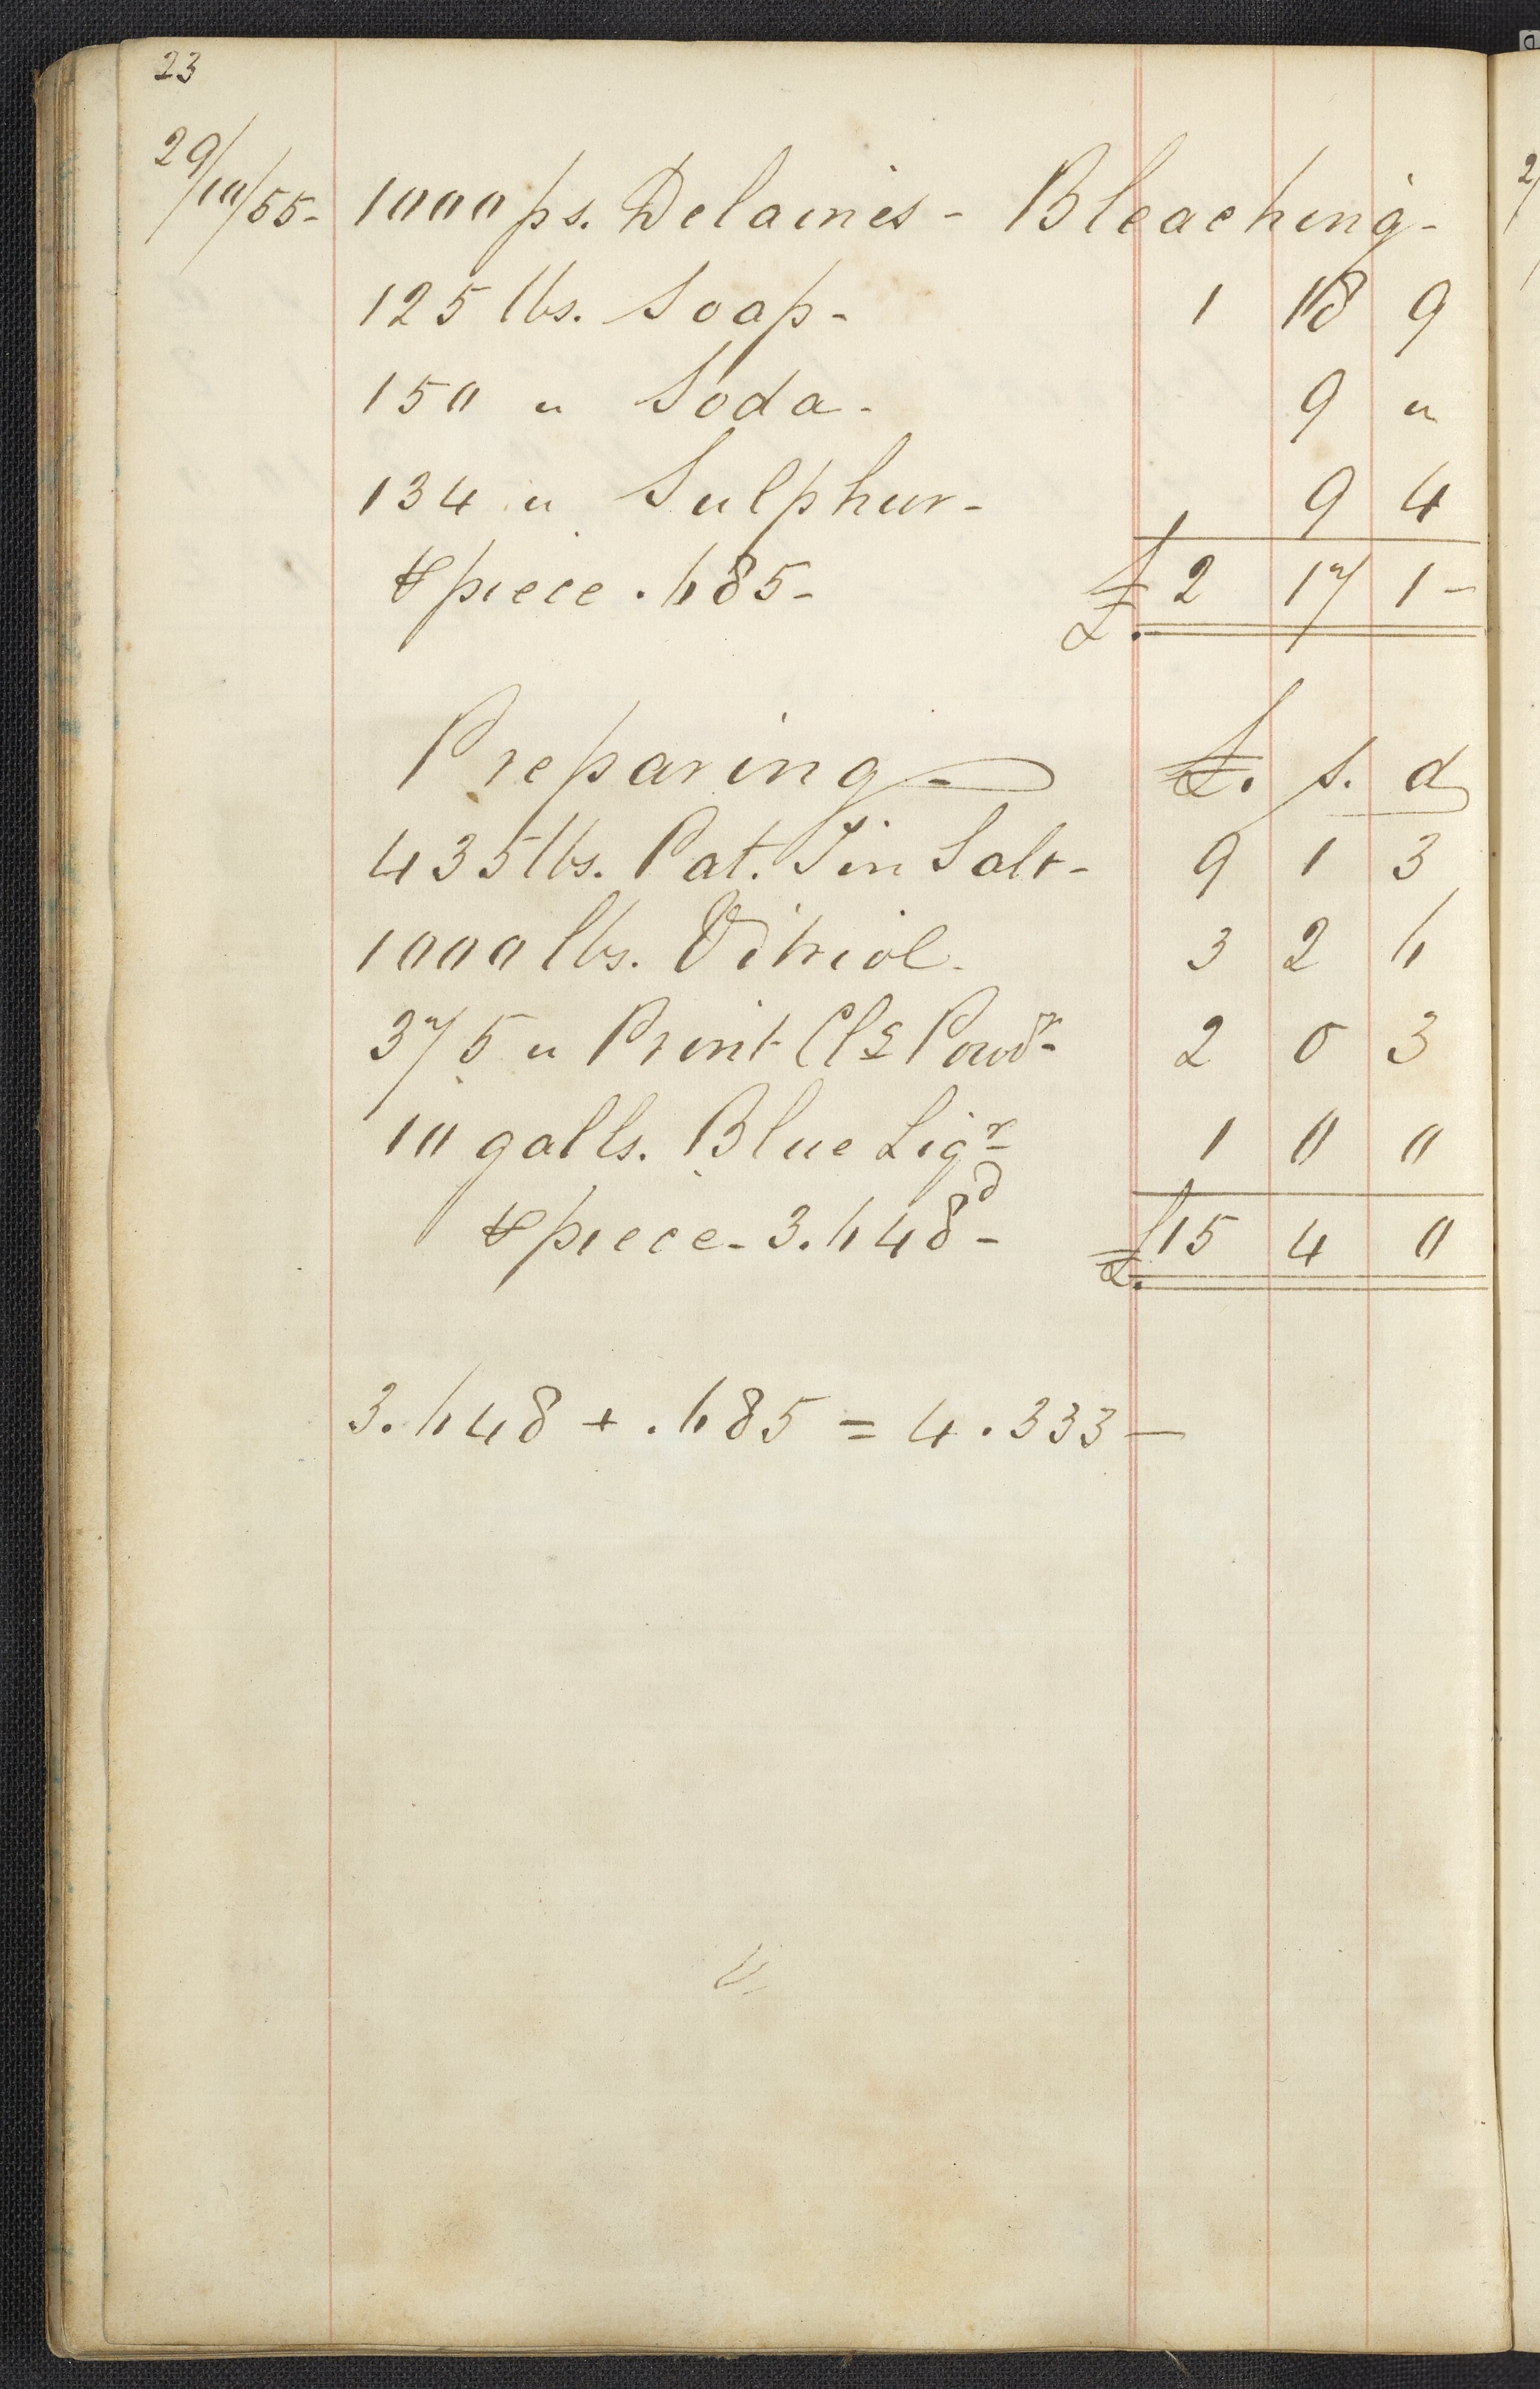 23
29/10/55- 1000 ps. Delaines - Bleaching -
125 lbs. Soap - 1 18 9
150 " Soda - 9 "
134 " Sulphur - 9 4
⅌ piece .685 - £2 17 1 -
Preparing - £. s. d
435 lbs. Pat. Tin Salt - 9 1 3
1000 lbs. Vitriol - 3 2 6
375 " Print Clg Powdr - 2 0 3
10 galls. Blue Liqr 1 0 0
⅌ piece - 3.648d - £15 4 0
3.648 + .685 = 4.333 -